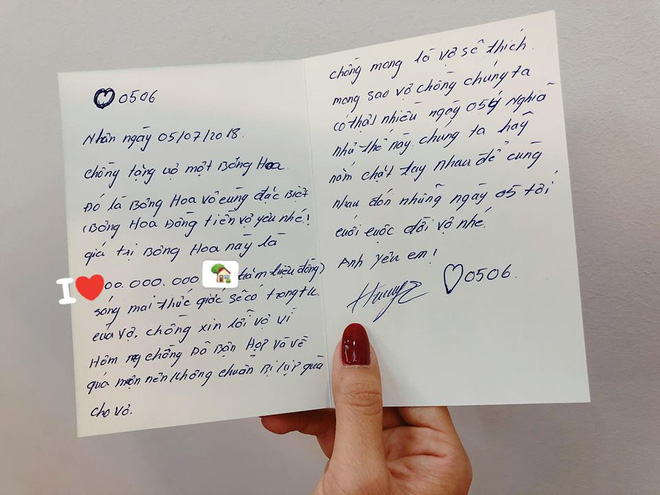 ♡0506
Nhân ngày 05/07/2018.
Chồng tặng vợ một Bông Hoa
Đó là Bông Hoa vô cùng đặc Biệt
(Bông Hoa Đồng tiền vợ yêu nhé!
giá trị Bông Hoa này là
I❤00.000.000 trăm triệu đồng)
sáng mai thức giấc sẽ có trong tk
của vợ. chồng xin lỗi vợ vì
Hôm nay chồng Đô Bận Họp Và về
quá muộn nên không chuẩn Bị kịp quà
cho vợ.
chồng mong là vợ sẽ thích.
mong sao vợ chồng chúng ta
có thật nhiều ngày 05 Nghĩa
như thế này chung ta hãy
nắm chặt tay nhau để cùng
nhau đón những ngày 05 tới
cuối cuộc đời vợ nhé.
Anh yêu em!
♡0506.